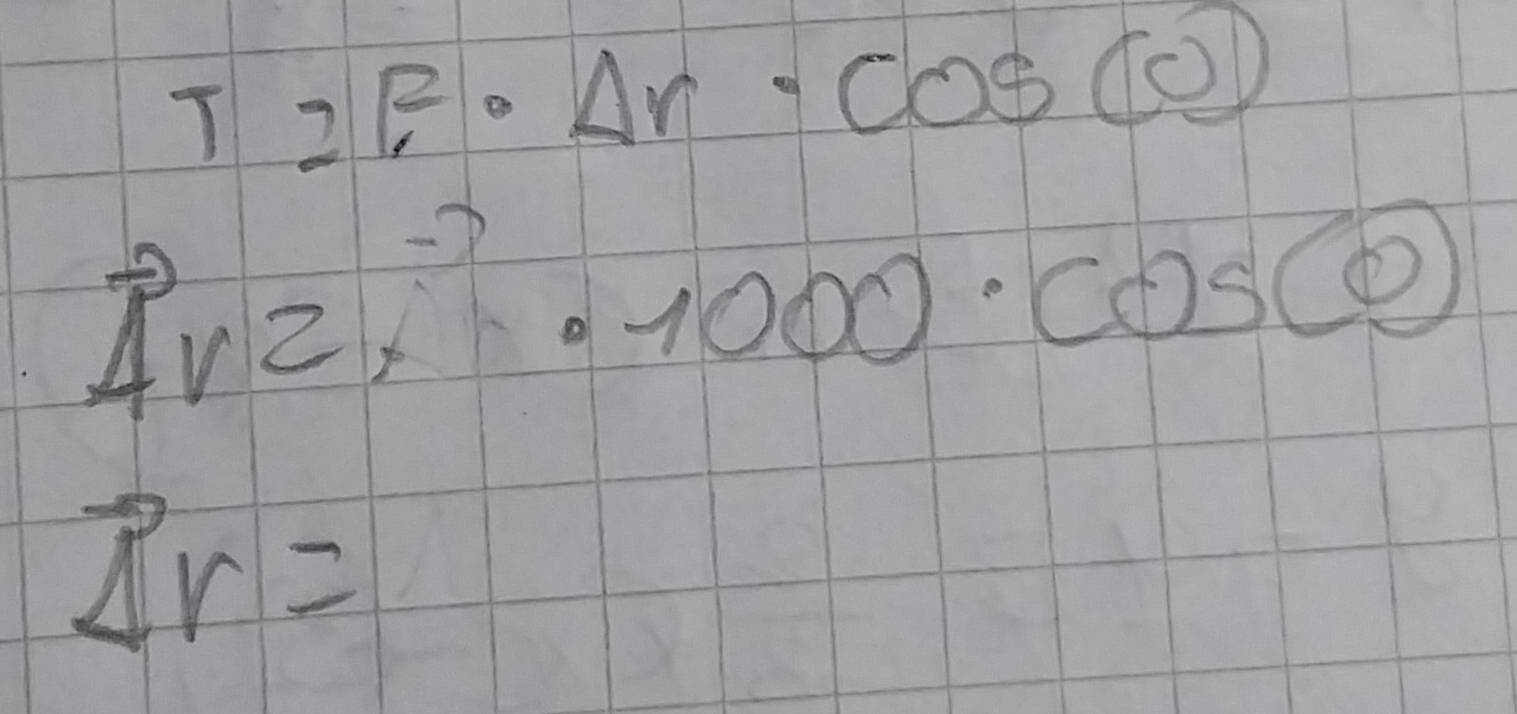 T = F · Δr · cos(0)
Δ⃗r = · 1000 · cos(0)
Δ⃗r =